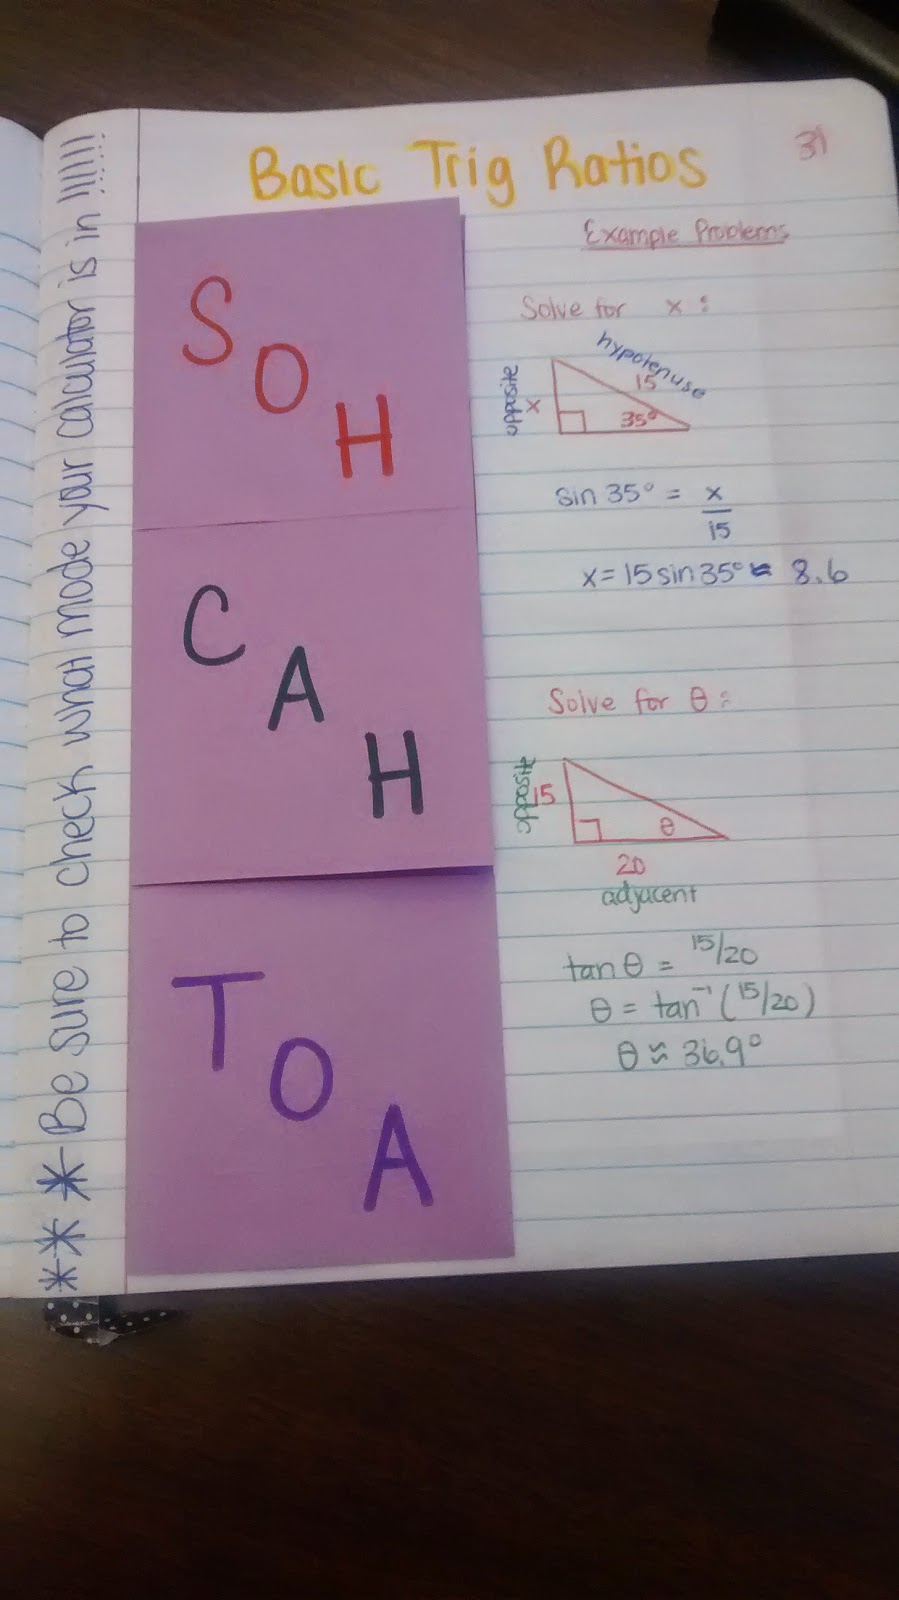 Basic Trig Ratios
31
** * Be sure to check what mode your calculator is in !!!!!!
S
O
H
C
A
H
T
O
A
Example Problems
Solve for x:
hypotenuse
opposite
15
x
35°
sin 35° = x/15
x = 15 sin 35° ≈ 8.6
Solve for θ:
opposite
15
θ
20
adjacent
tan θ = 15/20
θ = tan⁻¹ (15/20)
θ ≈ 36.9°